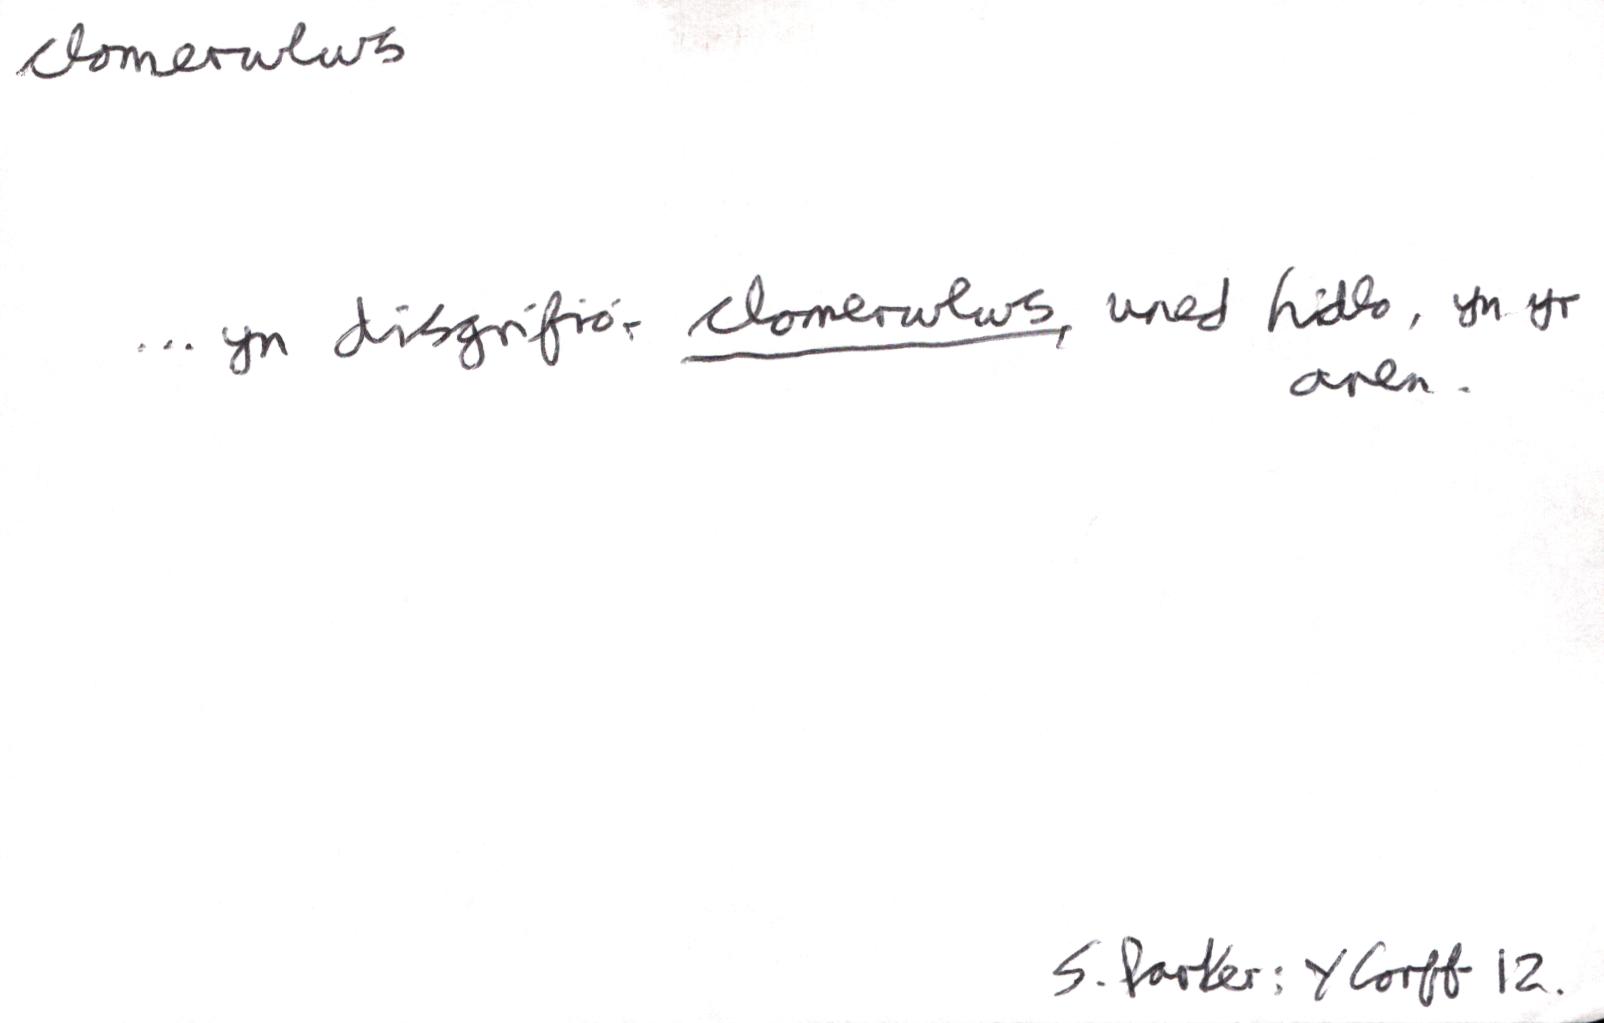 clomerwlws
... yn disgrifio'r clomerwlws, uned hidlo, yn yr
aren.
S. Parker: Y Corff 12.